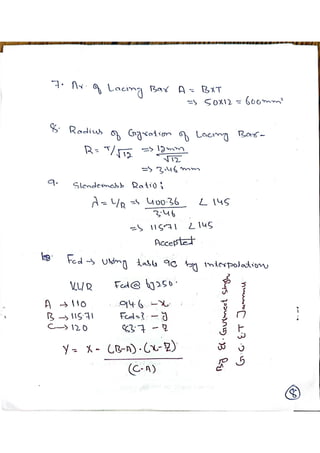 7. Ar of Lacing Bar A = BxT
=> 50x12 = 600mm²
8. Radius of Gyration of Lacing Bar-
R = T/√12 => 12mm/√12
=> 3.46 mm
9. Slenderness Ratio:
λ = L/R => 400.36/3.46 ∠ 145
=> 115.71 ∠ 145
Accepted
10 Fcd -> Using table 9C by interpolation
KL/R Fcd@ fy250.
A -> 110 94.6 - x
B -> 115.71 Fcd=? - y
C -> 120 83.7 - z
Y = X - (B-A).(x-z)/(C-A)
By Er. Gurmeet Singh
G C E T Jammu
8